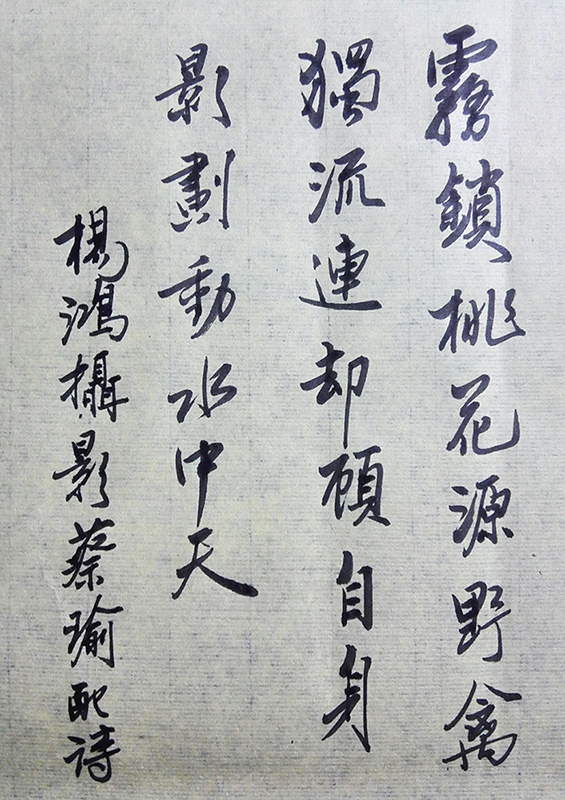 霧鎖桃花源野禽
獨流連却顧自身
影劃動水中天
楊鴻攝影蔡瑜配詩